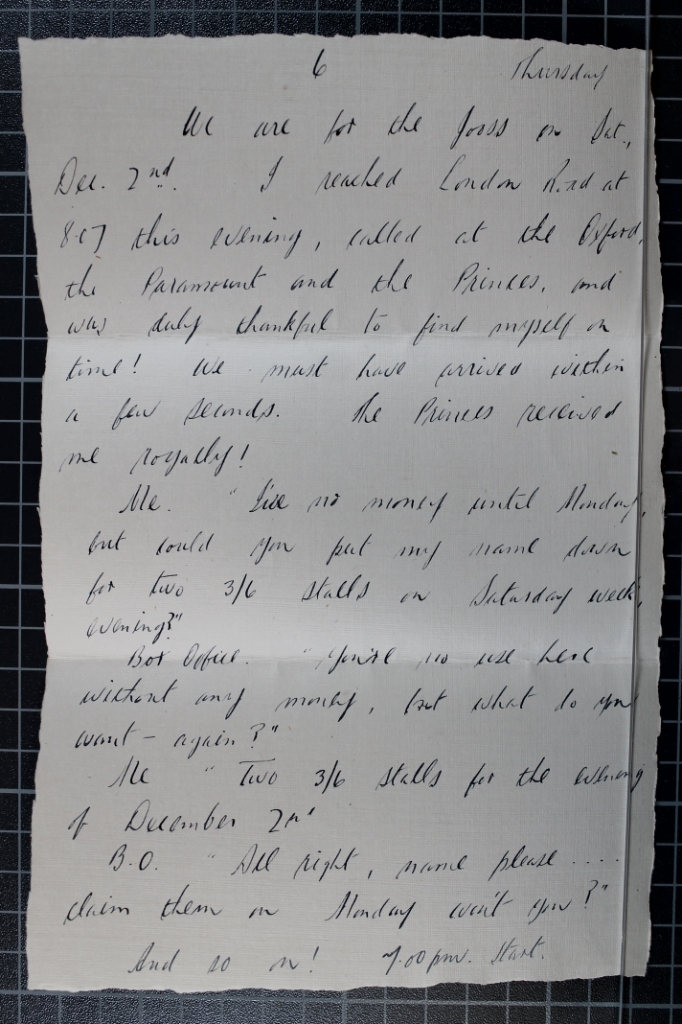 6 Thursday
We are for the Jooss on Sat.,
Dec. 2nd. I reached London Road at
8.07 this evening, called at the Oxford,
the Paramount and the Princes, and
was duly thankful to find myself on
time! We must have arrived within
a few seconds. The Princes received
me royally!
Me. "I've no money until Monday,
but could you put my name down
for two 3/6 stalls on Saturday week,
evening?"
Box Office. "You're no use here
without any money, but what do you
want – again?"
Me "Two 3/6 stalls for the evening
of December 2nd
B.O. "All right, name please ....
claim them on Monday won't you?"
And so on! 7.00 pm. Start.